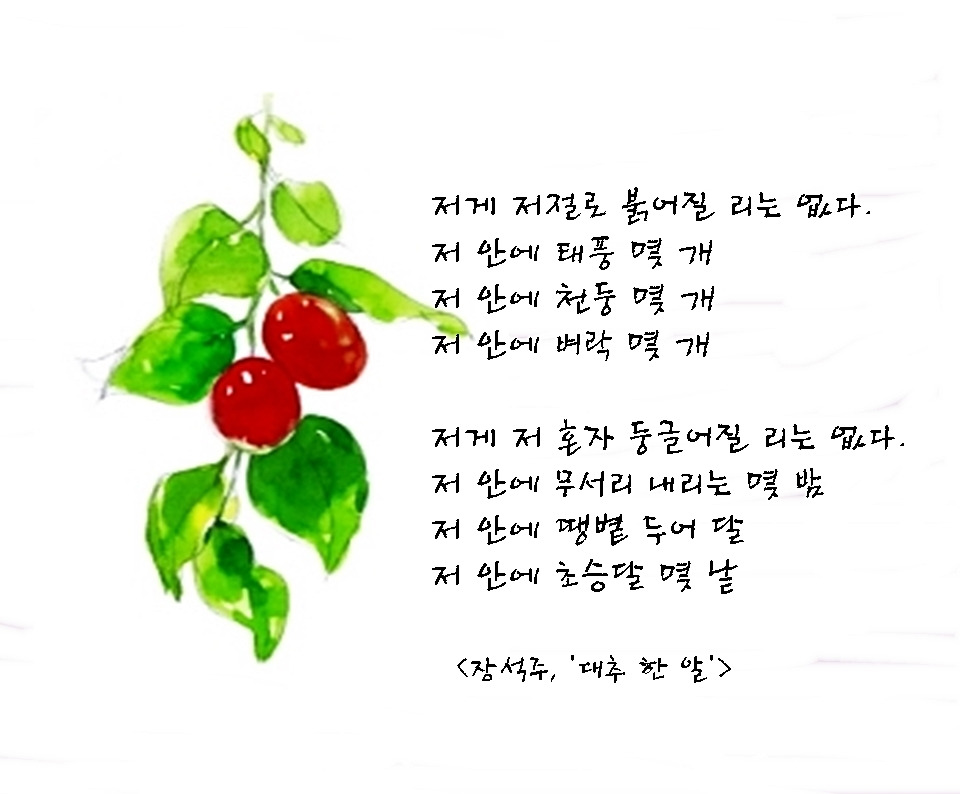 저게 저절로 붉어질 리는 없다.
저 안에 태풍 몇 개
저 안에 천둥 몇 개
저 안에 벼락 몇 개
저게 저 혼자 둥글어질 리는 없다.
저 안에 무서리 내리는 몇 밤
저 안에 땡볕 두어 달
저 안에 초승달 몇 날
<장석주, '대추 한 알'>